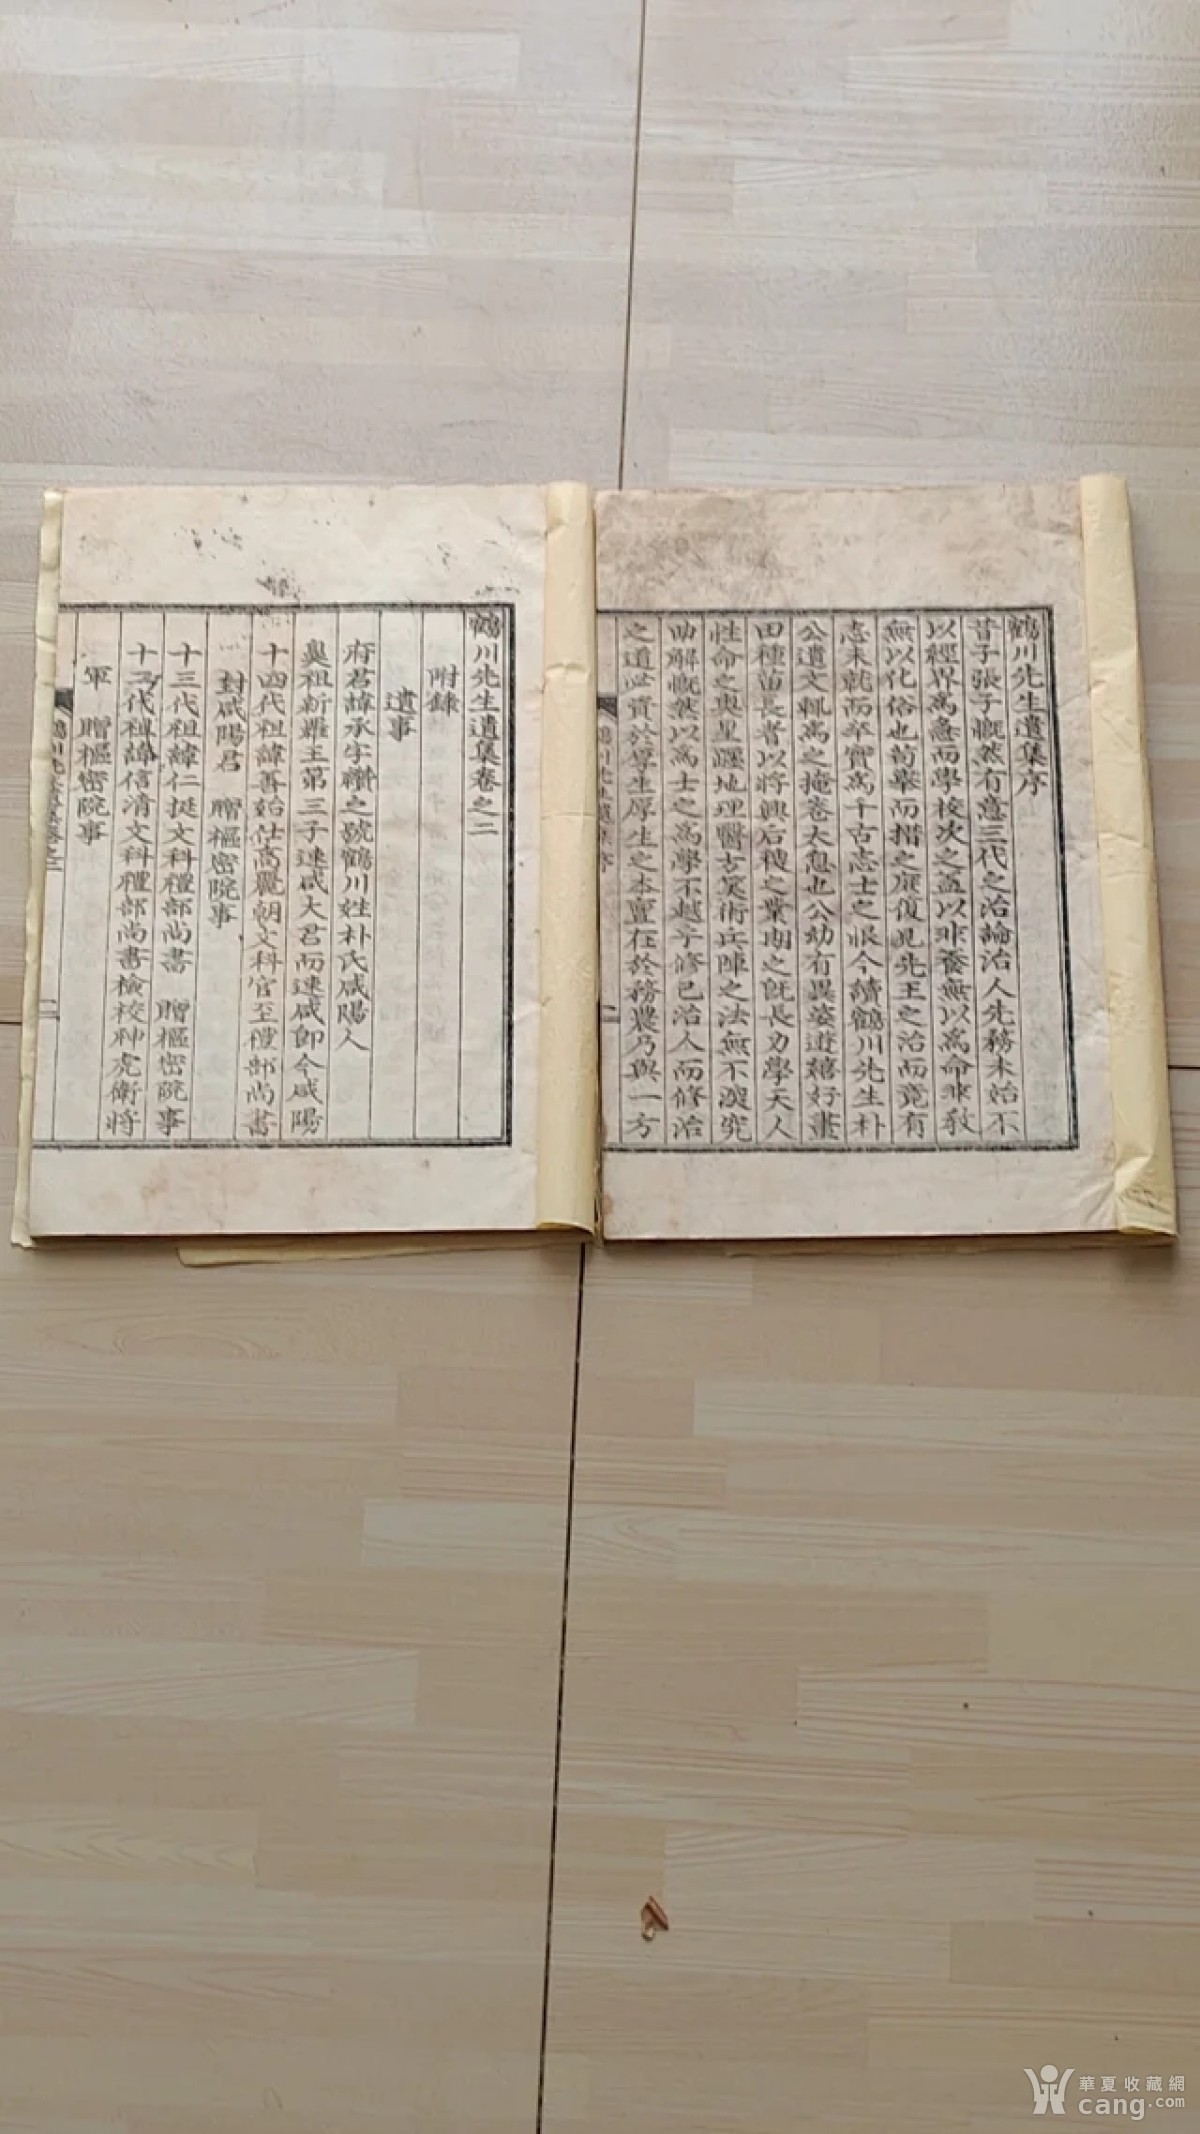 鶴川先生遺集序
昔子張子慨然有意三代之治論治人先務未始不
以經界爲急而學校次之盖以非養無以爲命非敎
無以化俗也苟擧而措之庶復見先王之治而竟有
志未就而卒實爲千古志士之恨今讀鶴川先生朴
公遺文輒爲之掩卷太息也公幼有異姿遊嬉好畫
田種苗長者以將興后稷之業期之旣長力學天人
性命之與星躔地理醫古筭術兵陣之法無不淚究
而修治
之道必資於厚生厚生之本亶在於務農乃與一方
鶴川先生遺集卷之二
附錄
遺事
府君諱承字纉之號鶴川姓朴氏咸陽人
奥祖新羅王第三子速咸大君而速咸卽今咸陽
十四代祖諱善始仕高麗朝文科官至禮部尚書
封咸陽君 贈樞密院事
十三代祖諱仁挺文科禮部尚書 贈樞密院事
十二代祖諱信淸文科禮部尚書檢校神虎衛將
軍 贈樞密院事
華夏收藏網
cang.com